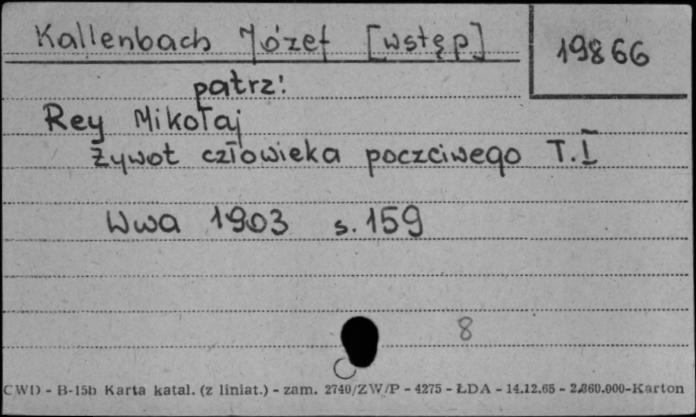 Kallenbach Józef [wstęp]
19866
patrz:
Rey Mikołaj
Żywot człowieka poczciwego T.I
Wwa 1903 s. 159
8
CWD - B-15b Karta katal. (z liniat.) - zam. 2740/ZW/P - 4275 - ŁDA - 14.12.65 - 2.860.000-Karton